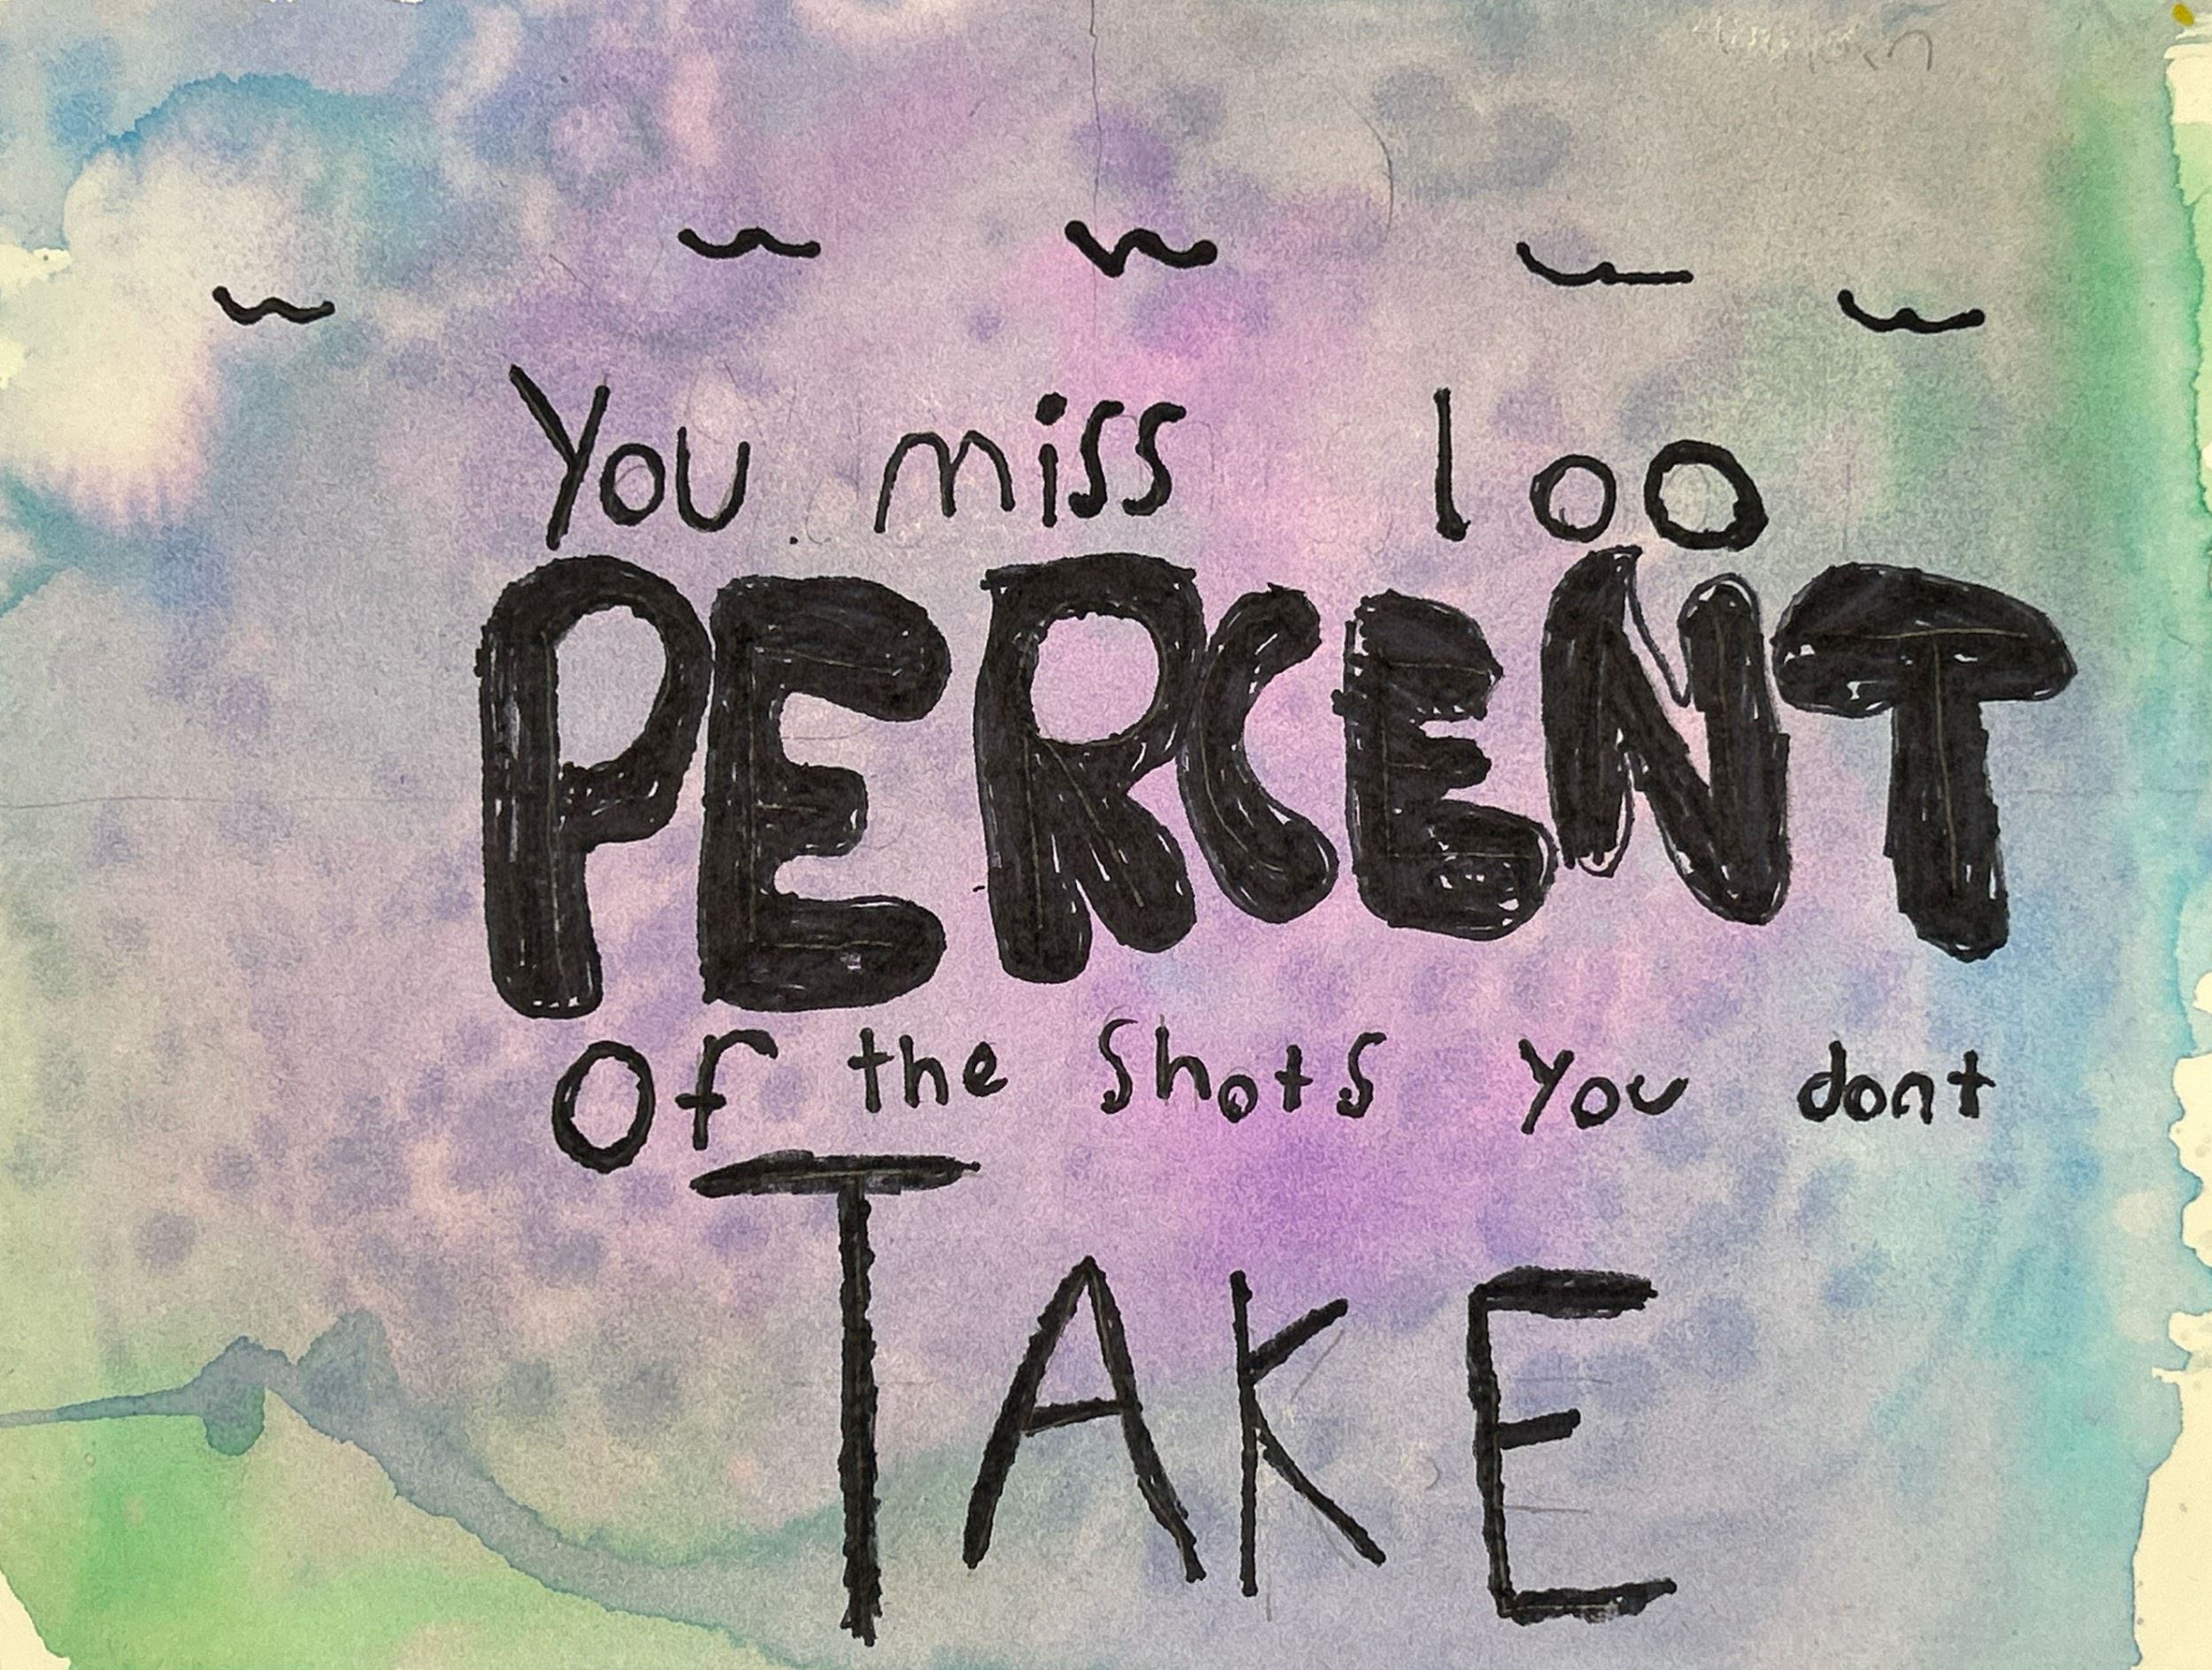 You miss 100
PERCENT
Of the Shots You dont
TAKE